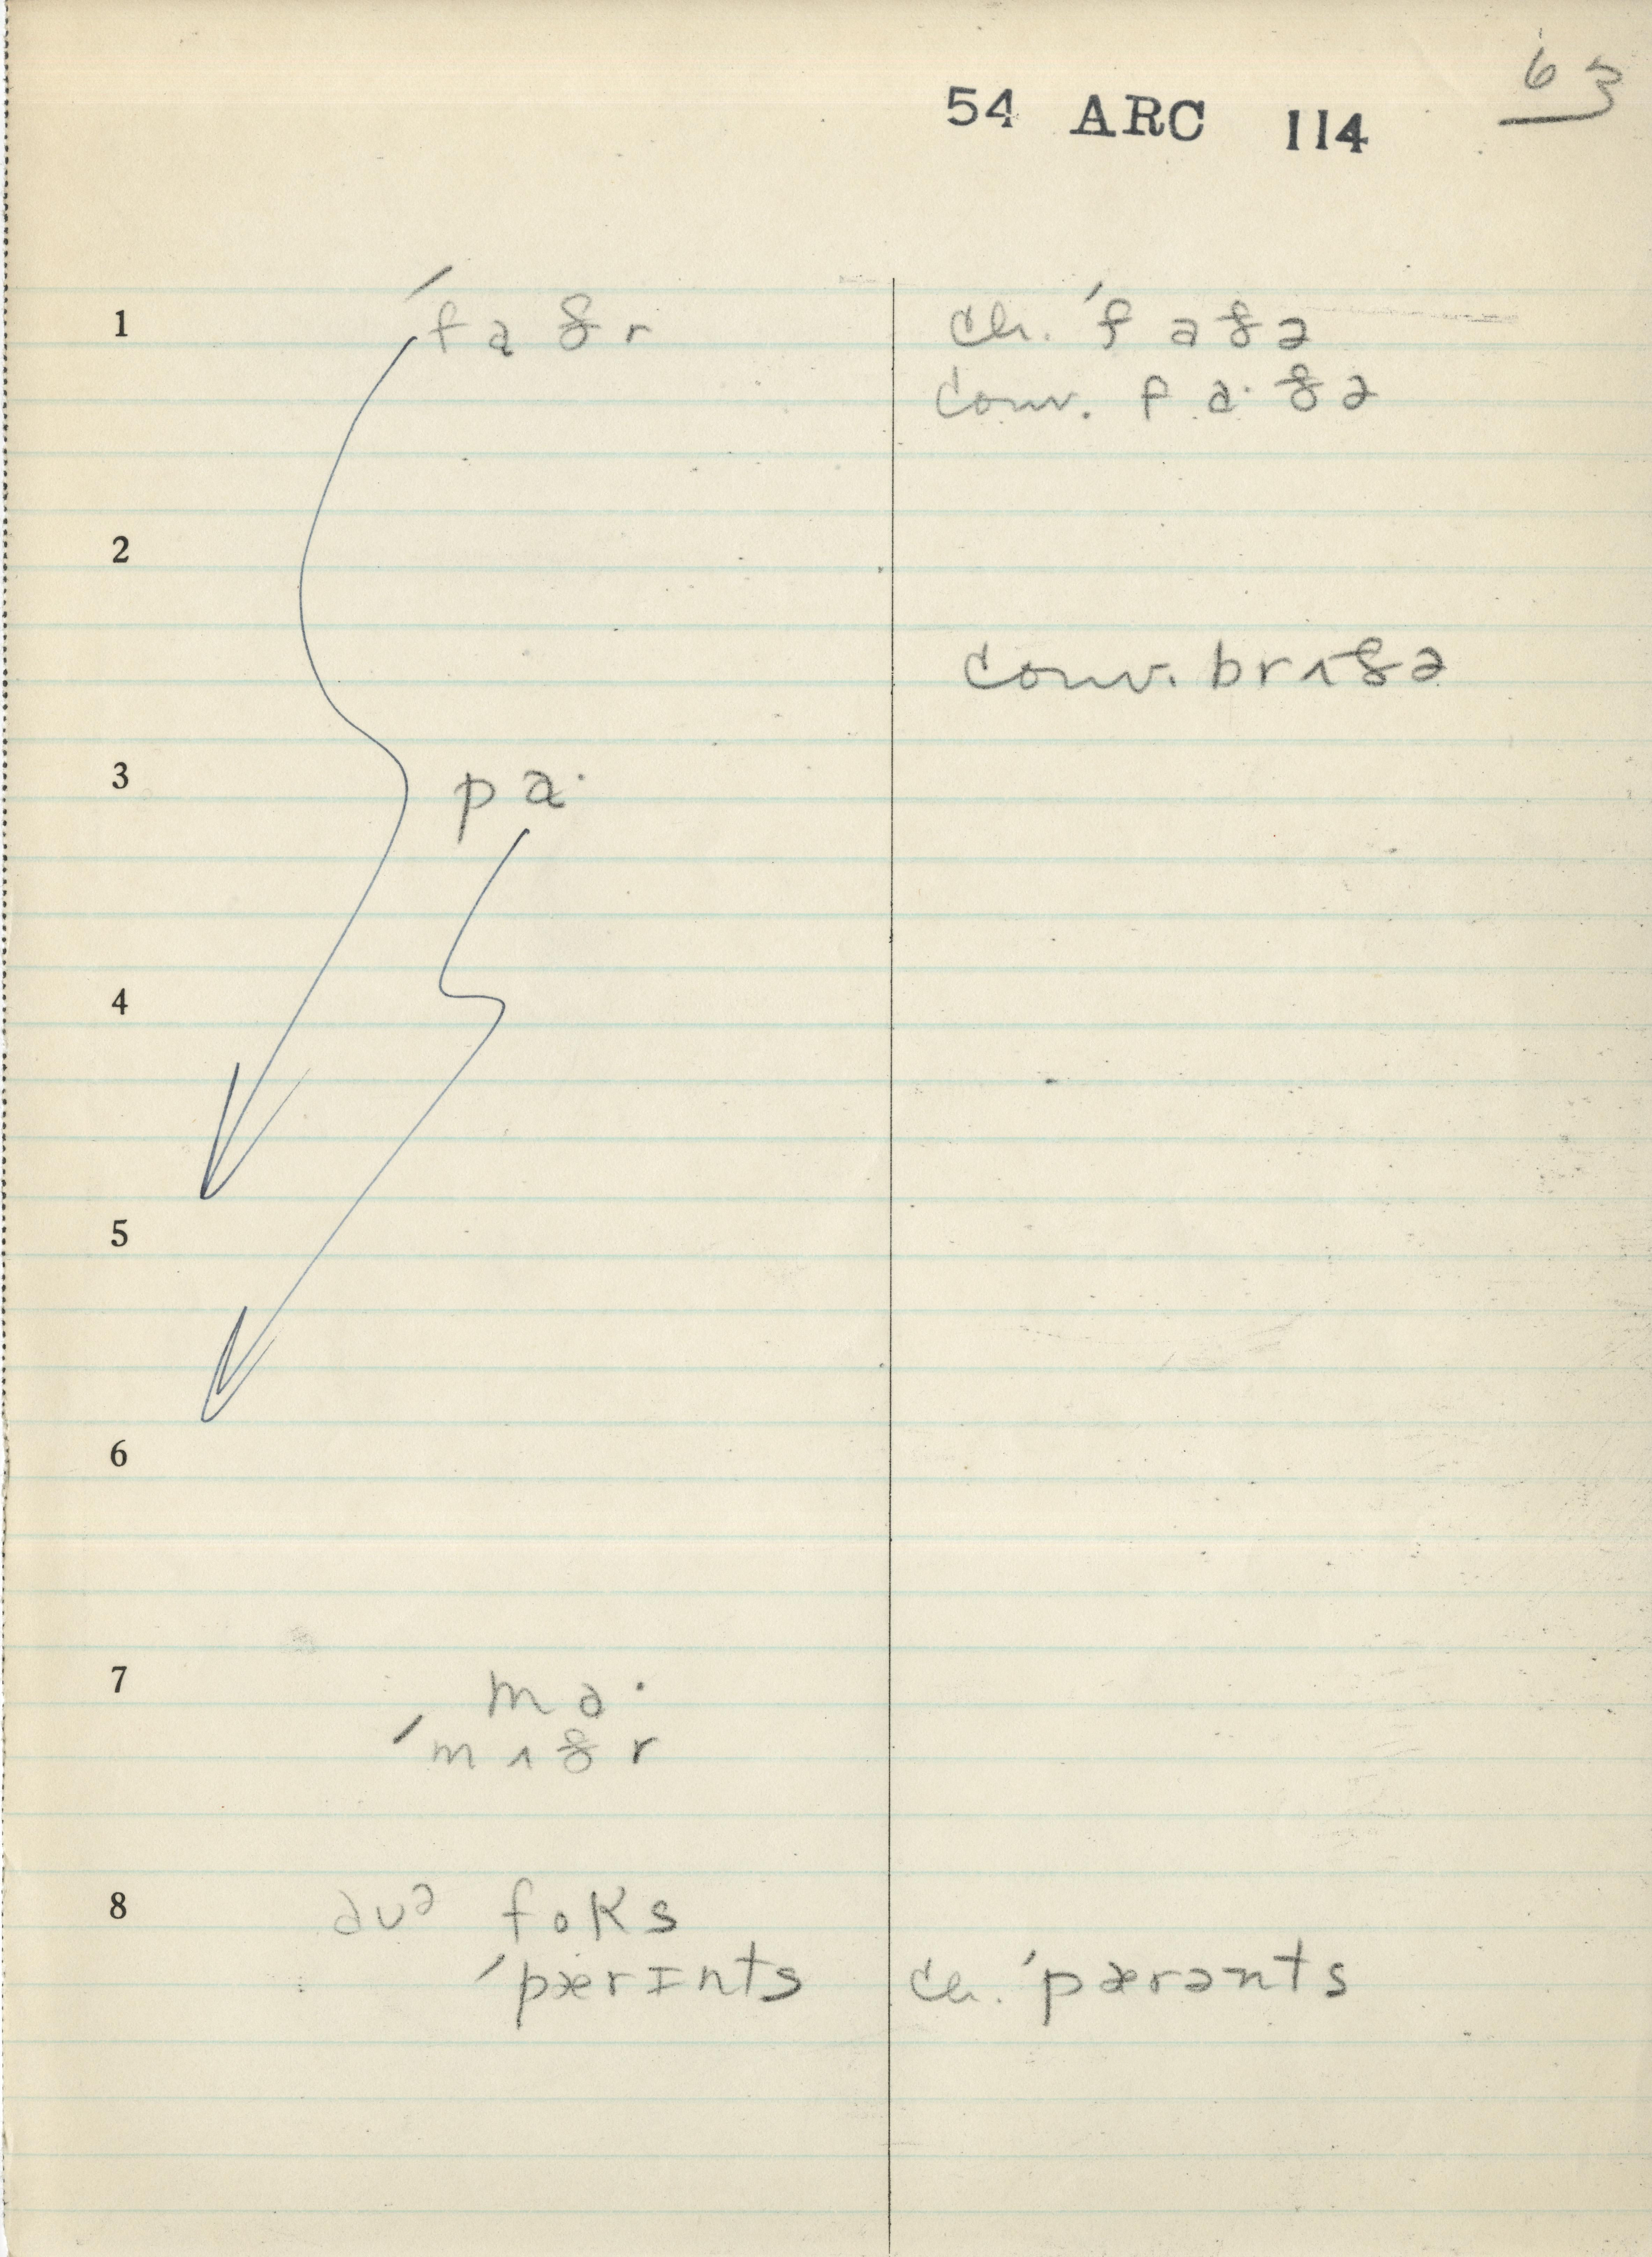 63
54 ARC 114
1 ˈfɑðr ch. ˈfaðə
conv. fa·ðə
2
conv. brʌðə
3 pa·
4
5
6
7 ma·
ˈmʌðr
8 ðə foks
ˈpærɪnts ch. ˈpærənts